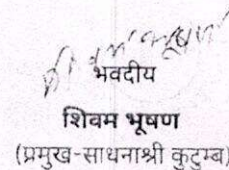 भवदीय
शिवम भूषण
(प्रमुख-साधनाश्री कुटुम्ब)